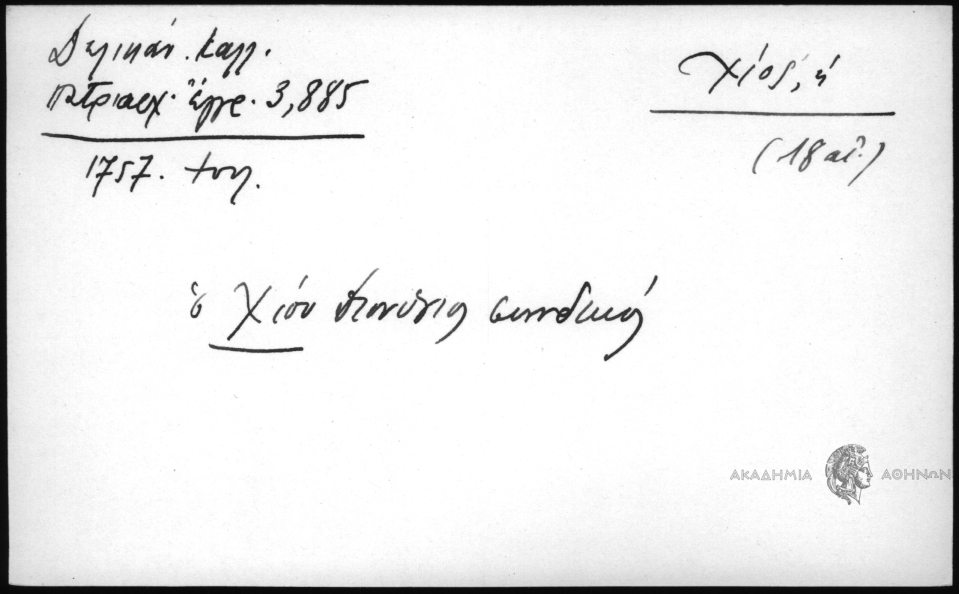 Δελικάν. Καλλ.
Πατριαρχ. Ἔγγρ. 3,885
1757. Ἰουλ.
Χίος, ἡ
(18 αἰ.)
ὁ Χίου Διονύσιος συνοδικός
ΑΚΑΔΗΜΙΑ ΑΘΗΝΩΝ